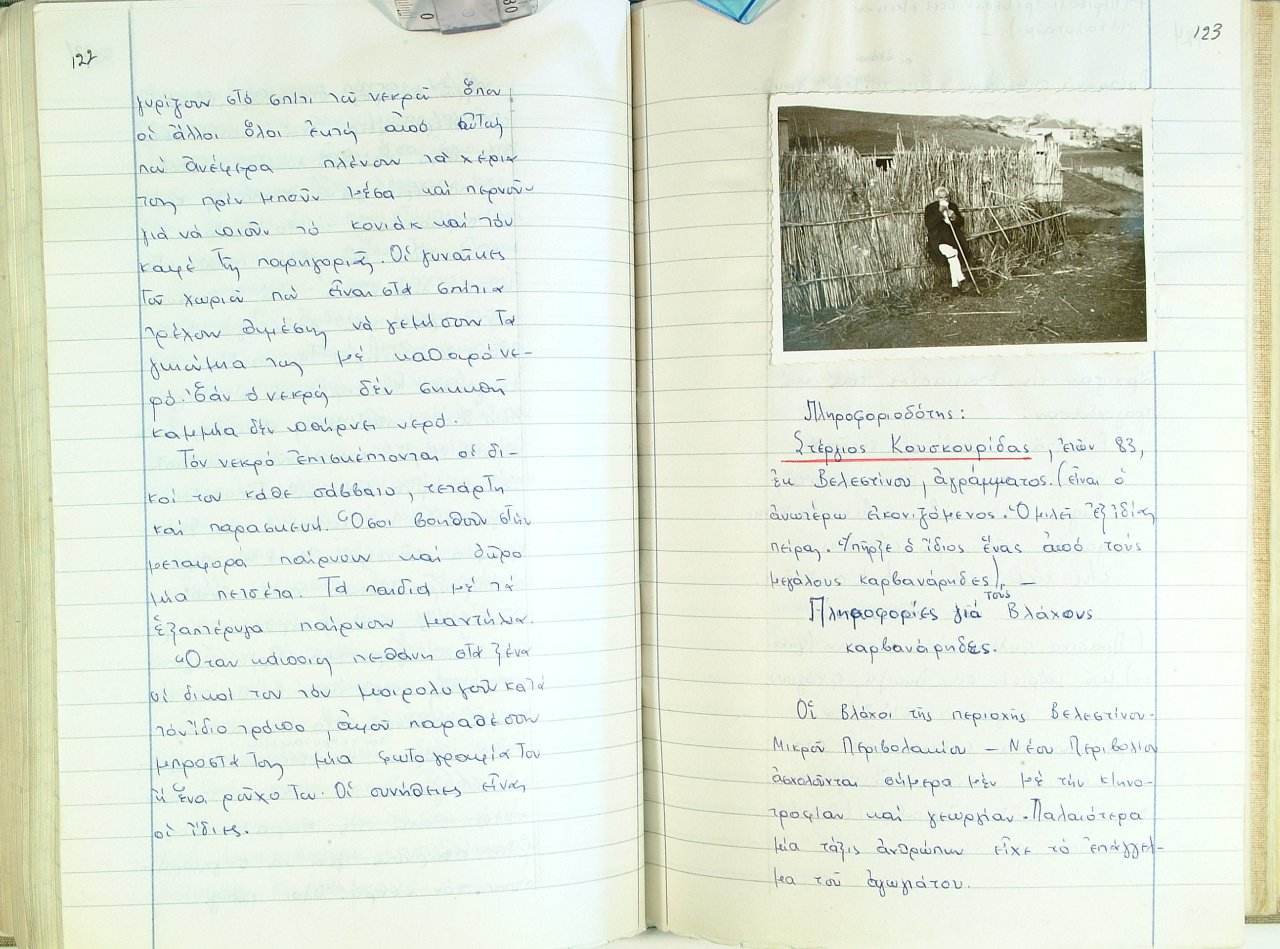 122
γυρίζουν στό σπίτι τοῦ νεκροῦ ὅπου
οἱ ἄλλοι ὅλοι ἐκτός ἀπό αὐτούς
πού ἀνέφερα πλένουν τά χέρια
τους πρίν μποῦν μέσα καί περνοῦν
γιά νά πιοῦν τό κονιάκ καί τόν
καφέ τῆς παρηγοριᾶς. Οἱ γυναῖκες
τοῦ χωριοῦ πού εἶναι στά σπίτια
τρέχουν ἀμέσως νά γεμίσουν τά
γκιούμια τους μέ καθαρό νε-
ρό. Ἐάν ὁ νεκρός δέν σηκωθῆ
καμμία δέν παίρνει νερό.
Τόν νεκρό ἐπισκέπτονται οἱ δι-
κοί του κάθε σάββατο, τετάρτη
καί παρασκευή. Ὅσοι βοηθοῦν στήν
μεταφορά παίρνουν καί δῶρο
μία πετσέτα. Τά παιδιά μέ τά
ἑξαπτέρυγα παίρνουν μαντήλια.
Ὅταν κάποιος πεθάνη στά ξένα
οἱ δικοί του τόν μοιρολογοῦν κατά
τόν ἴδιο τρόπο, ἀφοῦ παραθέσουν
μπροστά τους μία φωτογραφία του
ἤ ἕνα ροῦχο του. Οἱ συνήθειες εἶναι
οἱ ἴδιες.
123
Πληροφοριοδότης:
Στέργιος Κουσκουρίδας, ἐτῶν 83,
ἐκ Βελεστίνου, ἀγράμματος. (εἶναι ὁ
ἀνωτέρω εἰκονιζόμενος. Ὁμιλεῖ ἐξ ἰδίας
πείρας. Ὑπῆρξε ὁ ἴδιος ἕνας ἀπό τούς
μεγάλους καρβανάρηδες). —
Πληροφορίες γιά τούς Βλάχους
καρβανάρηδες.
Οἱ Βλάχοι τῆς περιοχῆς Βελεστίνου-
Μικροῦ Περιβολακίου - Νέου Περιβολίου
ἀσχολοῦνται σήμερα μέν μέ τήν κτηνο-
τροφίαν καί γεωργίαν. Παλαιότερα
μία τάξις ἀνθρώπων εἶχε τό ἐπάγγελ-
μα τοῦ ἀγωγιάτου.